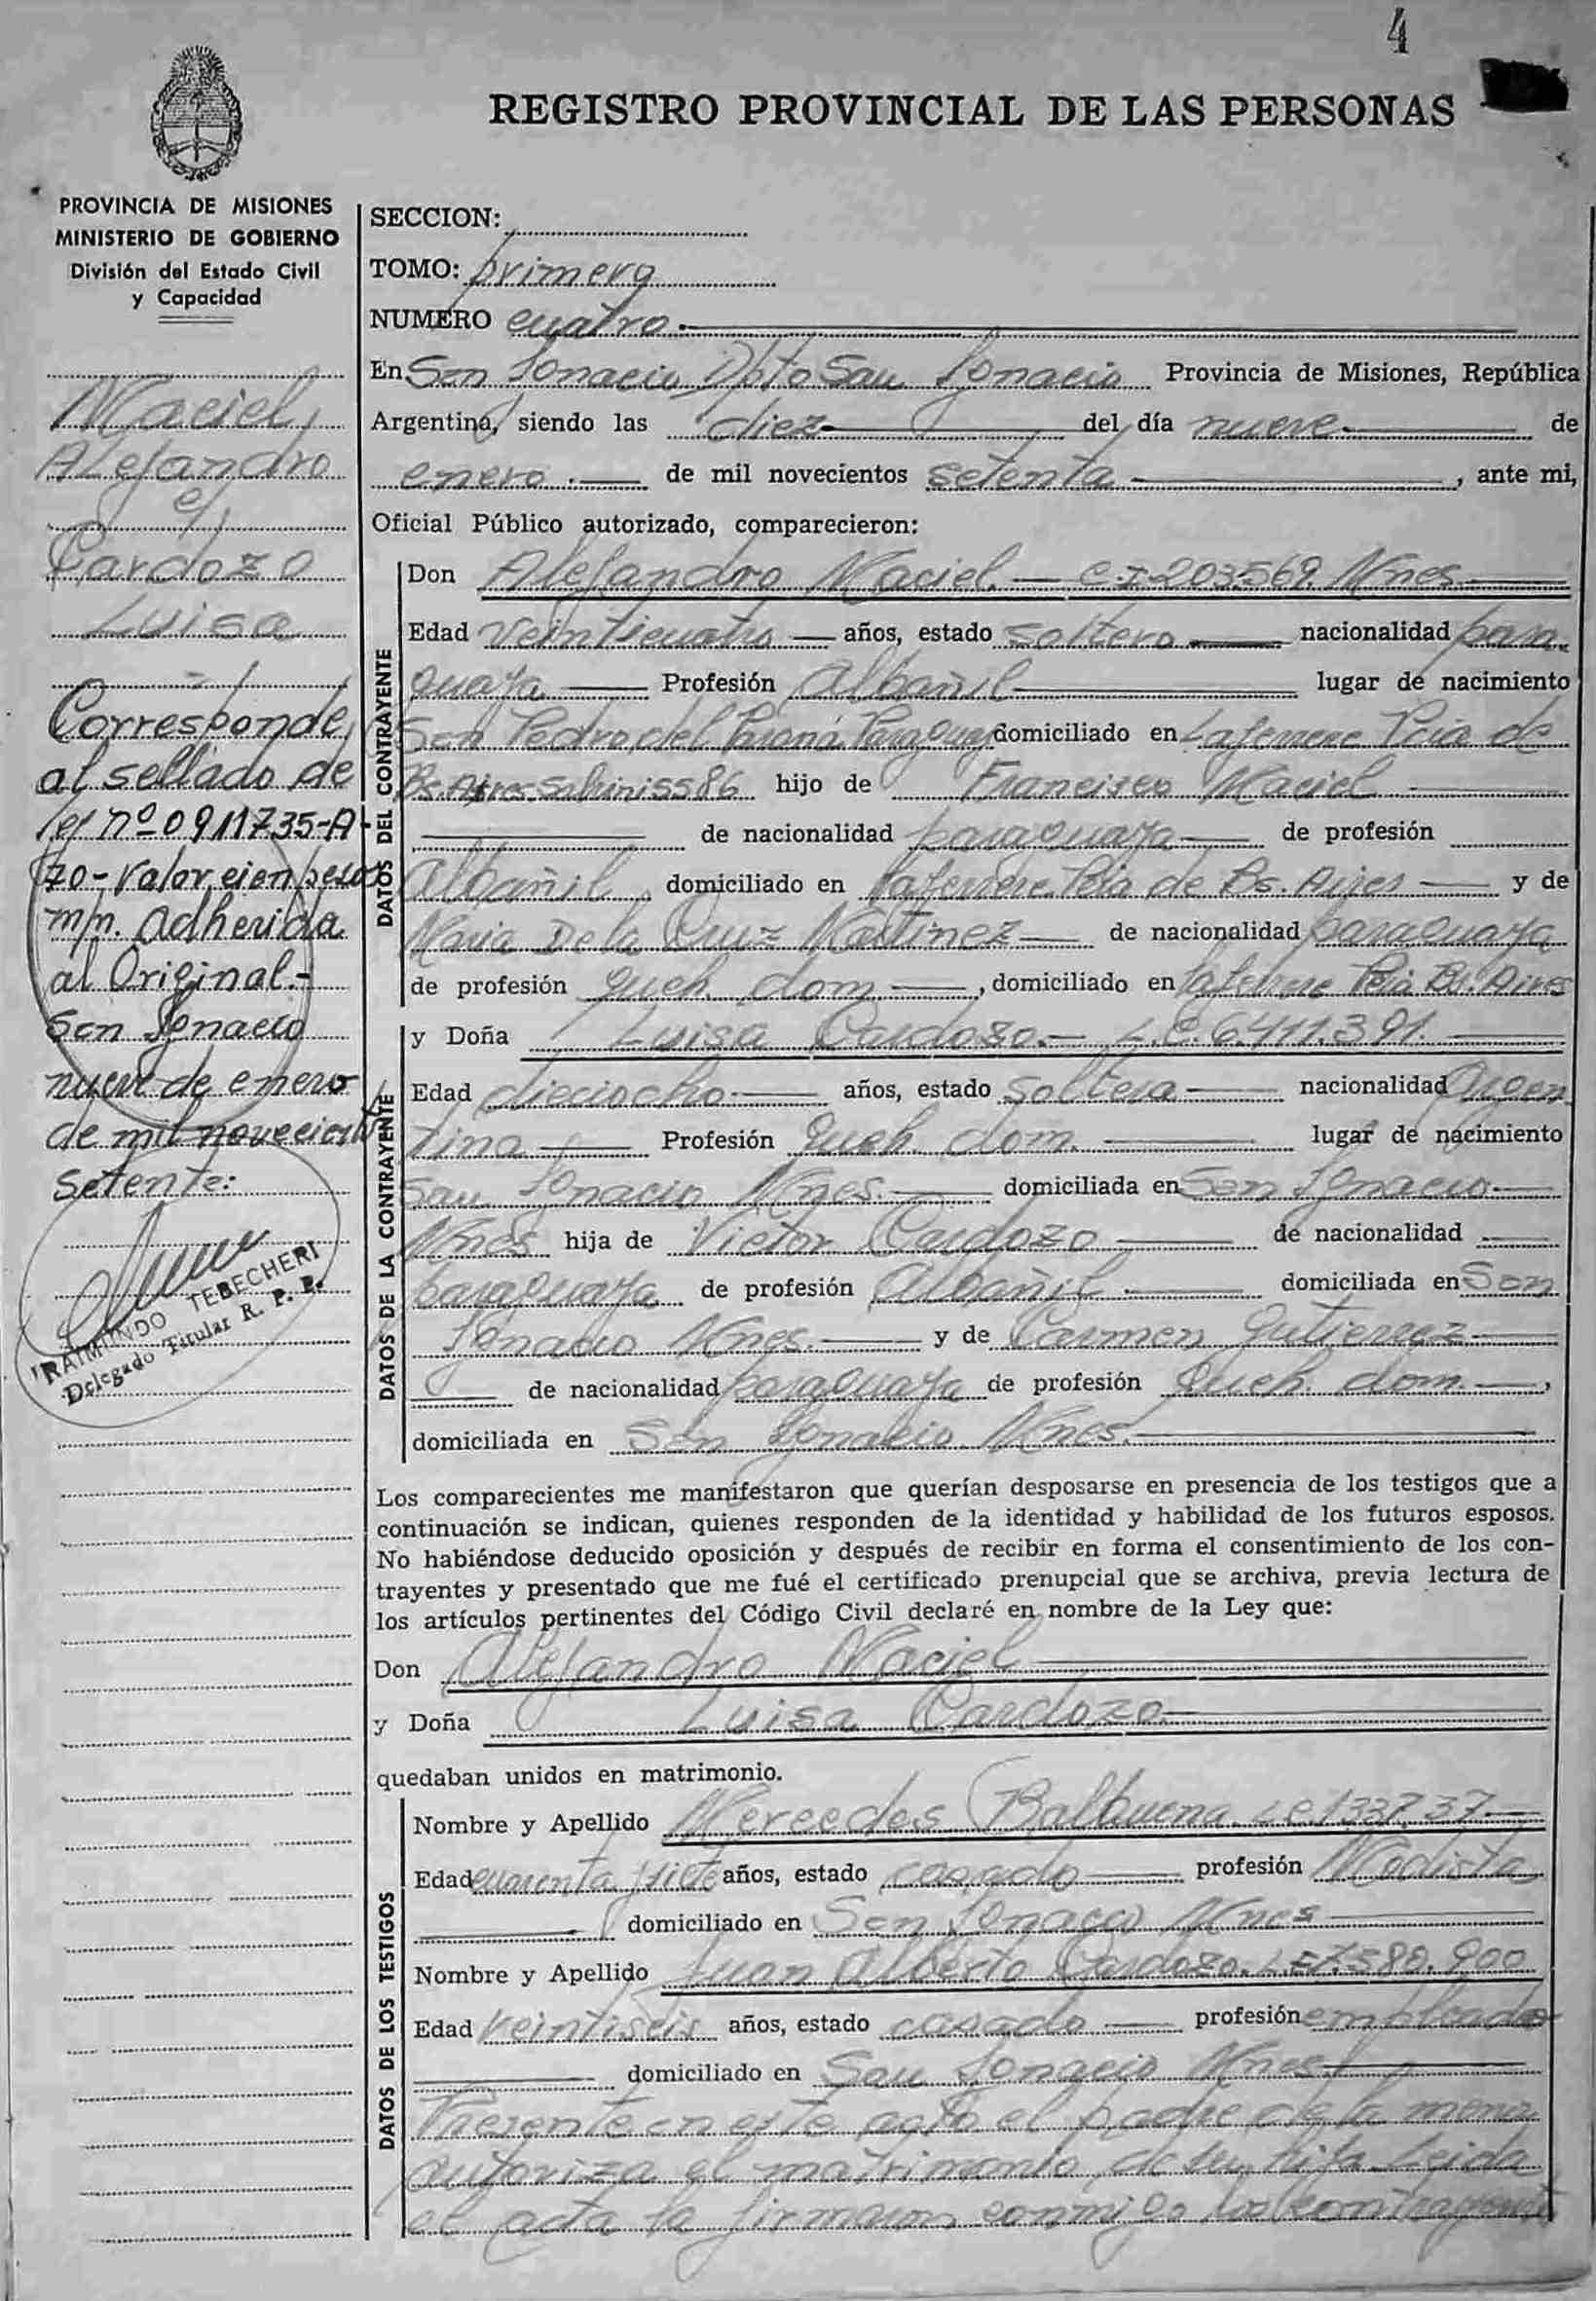 4
REGISTRO PROVINCIAL DE LAS PERSONAS
PROVINCIA DE MISIONES
MINISTERIO DE GOBIERNO
División del Estado Civil
y Capacidad
Maciel,
Alejandro
c/
Cardozo
Luisa
Corresponde
al sellado de
ley nº 0911735-A-
70- Valor cien pesos
m/n. Adherida
al Original.-
San Ignacio
nueve de enero
de mil novecientos
setenta:
RAIMUNDO TEBECHERI
Delegado Titular R. P. P.
SECCION:
TOMO: primero
NUMERO cuatro.
En San Ignacio, Dpto San Ignacio Provincia de Misiones, República
Argentina, siendo las diez del día nueve de
enero de mil novecientos setenta, ante mi,
Oficial Público autorizado, comparecieron:
DATOS DEL CONTRAYENTE
Don Alejandro Maciel.— C.I. 203.569. Mnes
Edad veinticuatro años, estado soltero nacionalidad para
guaya Profesión Albañil lugar de nacimiento
San Pedro del Paraná Paraguay domiciliado en Laferrere Pcia de
Bs. Aires 5586 hijo de Francisco Maciel
de nacionalidad paraguaya de profesión
Albañil domiciliado en Laferrere Pcia de Bs. Aires y de
Maria De la Cruz Martinez de nacionalidad paraguaya
de profesión queh. dom, domiciliado en Laferrere Pcia Bs. Aires
DATOS DE LA CONTRAYENTE
y Doña Luisa Cardozo.— L.C. 6.411.391.
Edad dieciocho años, estado soltera nacionalidad Argen
tina Profesión Queh. dom. lugar de nacimiento
San Ignacio Mnes. domiciliada en San Ignacio
Mnes hija de Victor Cardozo de nacionalidad
paraguaya de profesión Albañil domiciliada en San
Ignacio Mnes. y de Carmen Gutierrez
de nacionalidad paraguaya de profesión Queh. dom.,
domiciliada en San Ignacio Mnes.
Los comparecientes me manifestaron que querían desposarse en presencia de los testigos que a
continuación se indican, quienes responden de la identidad y habilidad de los futuros esposos.
No habiéndose deducido oposición y después de recibir en forma el consentimiento de los con-
trayentes y presentado que me fué el certificado prenupcial que se archiva, previa lectura de
los artículos pertinentes del Código Civil declaré en nombre de la Ley que:
Don Alejandro Maciel
y Doña Luisa Cardozo
quedaban unidos en matrimonio.
DATOS DE LOS TESTIGOS
Nombre y Apellido Mercedes Balbuena.
Edad cuarenta y siete años, estado casado profesión Modista
domiciliado en San Ignacio Mnes
Nombre y Apellido Juan Alberto Cardozo. L.E. 7.580.900
Edad veintiseis años, estado casado profesión empleado
domiciliado en San Ignacio Mnes
Presente en este acto el padre de la menor
autoriza el matrimonio de su hija. Leida
el acta la firmaron conmigo los contrayentes